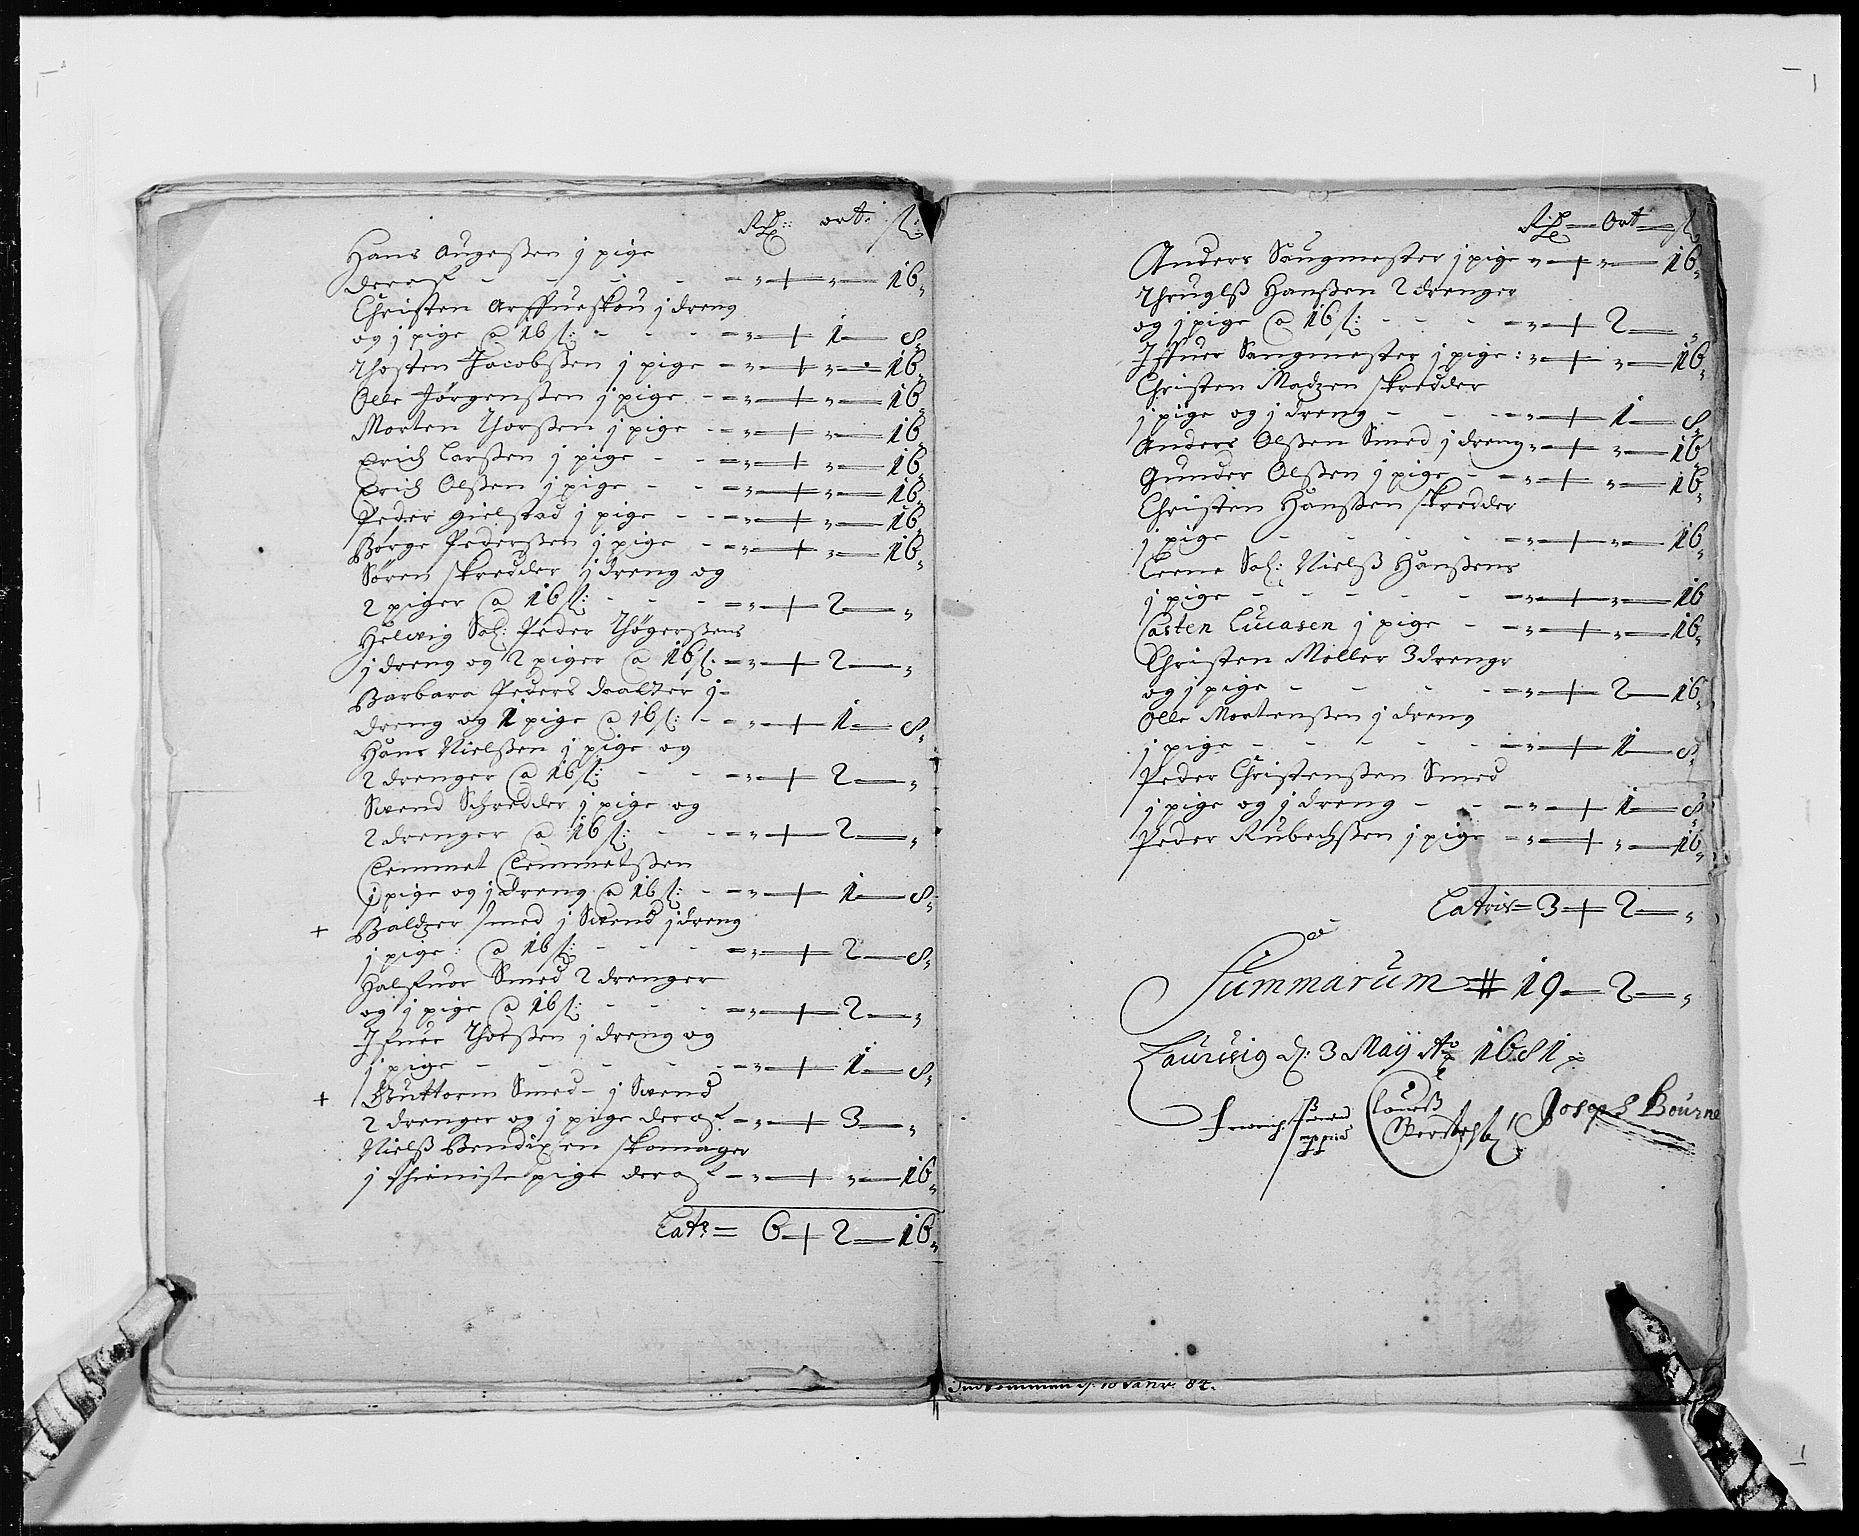 Rd: ort: ſ:
Hans Augeßen j pige
deraf - - - - - „ + „ 16„
Christen Arffueskou j dreng
og j pige a 16 ſ: - - - „ + 1 8„
Thosten Jacobßen j pige - „ + „ 16„
Olle Jørgenßen j pige - „ + „ 16„
Morten Thorßen j pige - „ + „ 16„
Erich Larßen j pige - - „ + „ 16„
Erich Olßen j pige - - „ + „ 16„
Peder gielstad j pige - - „ + „ 16„
Børge Pederßen j pige - „ + „ 16„
Søren skredder j dreng og
2 piger a 16 ſ: - - - „ + 2 „
Helwig Sal: Peder Thøgerßens
j dreng og 2 piger a 16 ſ: „ + 2 „
Barbara Peders daatter j
dreng og 1 pige a 16 ſ: - „ + 1 8„
Hans Nielßen j pige og
2 drenger a 16 ſ: - - „ + 2 „
Swend Schredder j pige og
2 drenger a 16 ſ: - - „ + 2 „
Clemmet Clemmetßen
j pige og j dreng a 16 ſ: - „ + 1 8„
+ Baldzer smed j Swend j dreng
j pige: a 16 ſ: - - - „ + 2 8„
Halfuor Smed 2 drenger
og j pige a 16 ſ: - - - „ + 2 „
Ifuer Thorßen j dreng og
j pige - - - - - „ + 1 8„
+ Guttorm Smed - j Swend
2 drenger og j pige deraf „ + 3 „
Nielß Bendixen skomager
j thieniste pige deraf - „ + „ 16„
Lat: = 6 + 2 16„
Rd Ort ſ
Anders Saugmester j pige „ + „ 16„
Thruglß Hanßen 2 drenger
og j pige a 16 ſ: - - - „ + 2 „
Iffuer Saugmester j pige: „ + „ 16„
Christen Madzen skredder
j pige og j dreng - - - „ + 1 8„
Anders Olßen Smed j dreng „ + „ 16
Gunder Olßen j pige - „ + „ 16„
Christen Hanßen skredder
j pige - - - - - „ + „ 16„
Leene Sal: Nielß Hanßens
j pige - - - - - „ + „ 16
Casten Lucasen j pige - „ + „ 16„
Christen Møller 3 drengr
og j pige - - - - „ + 2 16„
Olle Mortenßen j dreng
j pige - - - - - „ + 1 8„
Peder Christenßen Smed
j pige og j dreng - - „ + 1 8„
Peder Rubechßen j pige - „ + „ 16„
Latris = 3 + 2 „
Summarum # 19 2 „
Laurwig d: 3 Maij Ao 1681
Joseph Bourne
Indkommen d: 10 Janv: 84.